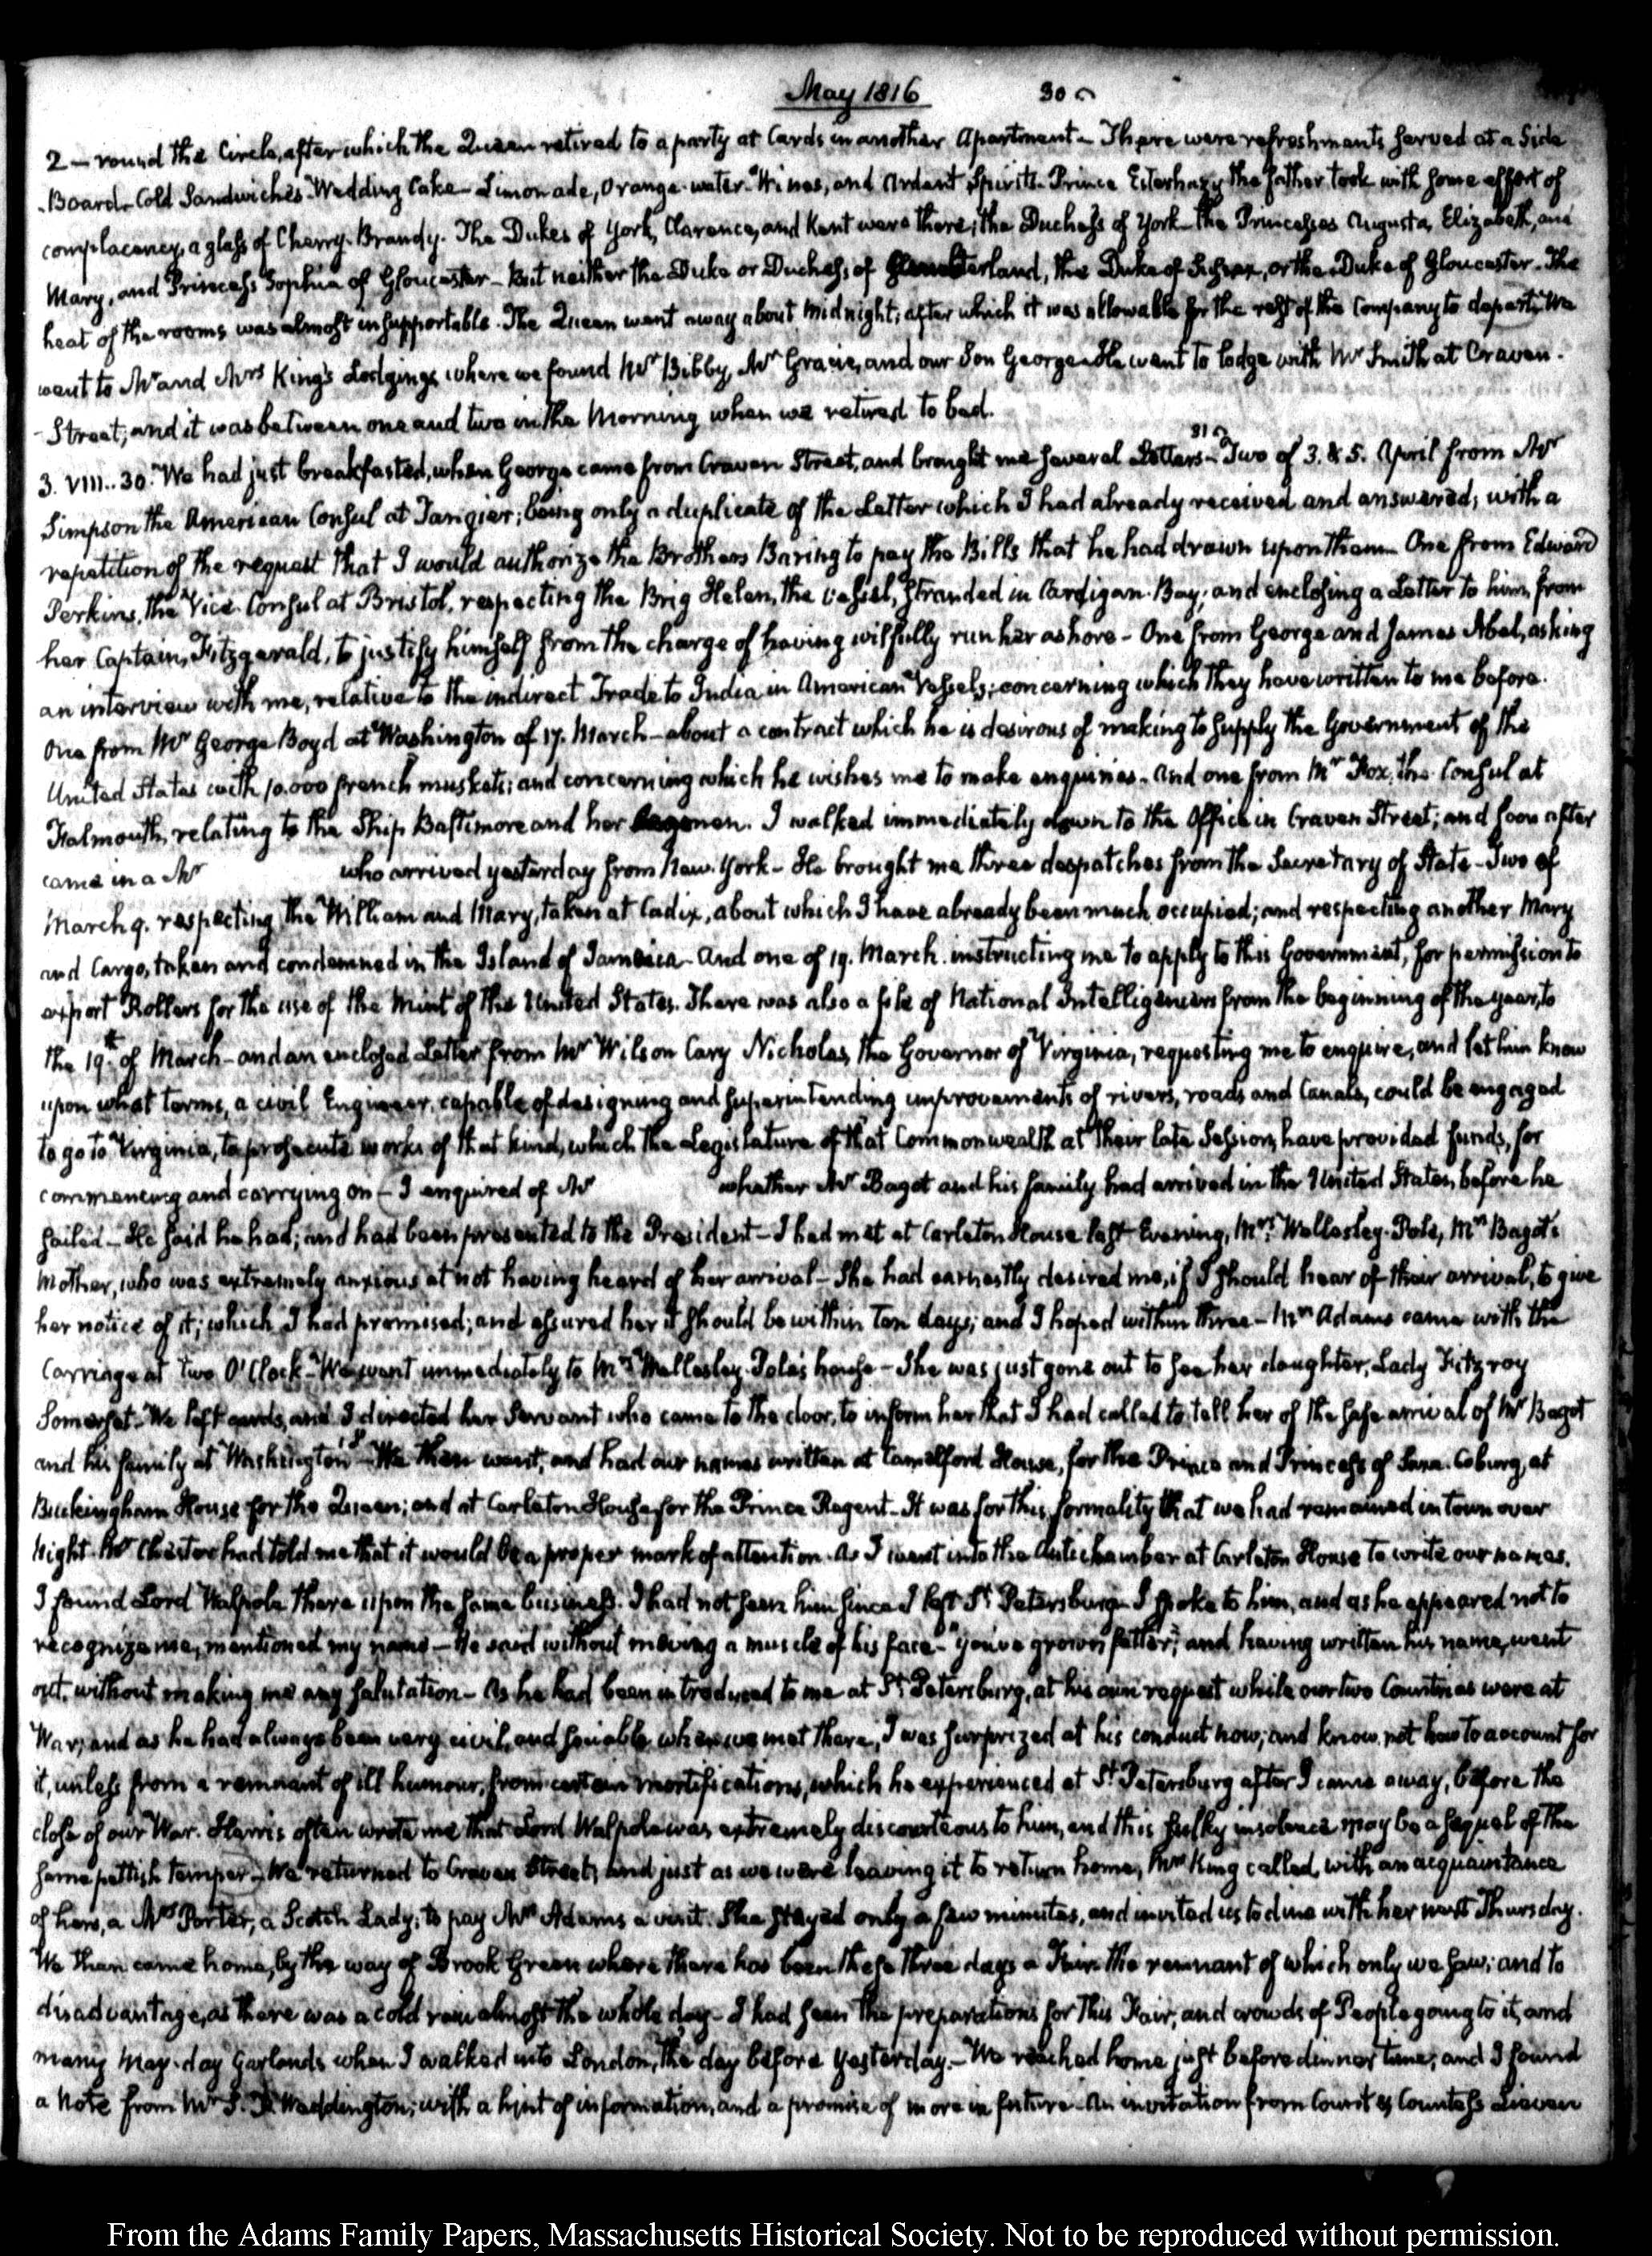 May 1816
2 — round the Circle, after which the Queen retired to a party at Cards in another Apartment — There were refreshments served at a Side
-Board. Cold Sandwiches. Wedding Cake — Limonade, Orange-water. Wines, and Ardent Spirits. Prince Esterhazy the father took with some effort of
complacency, a glass of Cherry-Brandy. The Dukes of York, Clarence, and Kent were there; the Duchess of York — the Princesses Augusta, Elizabeth, and
Mary, and Princess Sophia of Gloucester — But neither the Duke or Duchess of Cumberland, the Duke of Sussex, or the Duke of Gloucester. The
heat of the rooms was almost insupportable. The Queen went away about Midnight; after which it was allowable for the rest of the Company to depart. We
went to Mr and Mrs King's Lodgings where we found Mr Bibby, Mr Gracie, and our Son George. He went to lodge with Mr Smith at Craven-
-Street; and it was between one and two in the Morning when we retired to bed.
3. VIII..30. We had just breakfasted, when George came from Craven Street, and brought me several Letters — Two of 3. & 5. April from Mr
Simpson the American Consul at Tangier; being only a duplicate of the Letter which I had already received and answered; with a
repetition of the request that I would authorize the Brothers Baring to pay the Bills that he had drawn upon them — One from Edward
Perkins, the Vice-Consul at Bristol, respecting the Brig Helen, the vessel, stranded in Cardigan-Bay; and enclosing a Letter to him, from
her Captain, Fitzgerald, to justify himself from the charge of having wilfully run her ashore — One from George and James Abel, asking
an interview with me, relative to the indirect Trade to India in American Vessels; concerning which they have written to me before.
One from Mr George Boyd at Washington of 17. March — about a contract which he is desirous of making to supply the Government of the
United States with 10.000 french muskets; and concerning which he wishes me to make enquiries — And one from Mr Fox, the Consul at
Falmouth, relating to the Ship Baltimore and her Seamen. I walked immediately down to the Office in Craven Street; and soon after
came in a Mr who arrived yesterday from New-York — He brought me three despatches from the Secretary of State — Two of
March 9. respecting the William and Mary, taken at Cadiz, about which I have already been much occupied; and respecting another Mary
and Cargo, taken and condemned in the Island of Jamaica — And one of 19. March. instructing me to apply to this Government, for permission to
export Rollers for the use of the Mint of the United States. There was also a file of National Intelligencers from the beginning of the year, to
the 19th of March — and an enclosed Letter from Mr Wilson Cary Nicholas, the Governor of Virginia, requesting me to enquire, and let him know
upon what terms, a civil Engineer, capable of designing and superintending improvements of rivers, roads and Canals, could be engaged
to go to Virginia, to prosecute works of that kind, which the Legislature of that Commonwealth at their late Session, have provided funds, for
commencing and carrying on — I enquired of Mr whether Mr Bagot and his family had arrived in the United States, before he
sailed — He said he had; and had been presented to the President — I had met at Carleton House last Evening, Mrs Wellesley-Pole, Mrs Bagot's
Mother, who was extremely anxious at not having heard of her arrival — She had earnestly desired me, if I should hear of their arrival, to give
her notice of it; which I had promised; and assured her it should be within ten days; and I hoped within three — Mrs Adams came with the
Carriage at two O'Clock. We went immediately to Mrs Wellesley-Pole's house — She was just gone out to see her daughter, Lady Fitzroy
Somerset. We left cards, and I directed her Servant who came to the door, to inform her that I had called to tell her of the safe arrival of Mr Bagot
and his family at Washington — We then went, and had our names written at Camelford House, for the Prince and Princess of Saxe-Coburg, at
Buckingham House for the Queen; and at Carleton House for the Prince Regent — It was for this formality that we had remained in town over
night. Mr Chester had told me that it would be a proper mark of attention. As I went into the Antichamber at Carleton House to write our names,
I found Lord Walpole there upon the same business. I had not seen him since I left St Petersburg — I spoke to him, and as he appeared not to
recognize me, mentioned my name — He said without moving a muscle of his face — "you've grown fatter"; and having written his name, went
out, without making me any salutation — As he had been introduced to me at St Petersburg, at his own request while our two Countries were at
War; and as he had always been very civil, and sociable when we met there, I was surprized at his conduct now; and know not how to account for
it, unless from a remnant of ill humour, from certain mortifications, which he experienced at St Petersburg after I came away, before the
close of our War. Harris often wrote me that Lord Walpole was extremely discourteous to him, and this sulky insolence may be a sequel of the
same pettish temper — We returned to Craven Street; and just as we were leaving it to return home, Mrs King called, with an acquaintance
of hers, a Mrs Porter, a Scotch Lady; to pay Mrs Adams a visit. She stayed only a few minutes, and invited us to dine with her next Thursday.
We then came home, by the way of Brook Green where there has been these three days a Fair, the remnant of which only we saw; and to
disadvantage, as there was a cold rain almost the whole day — I had seen the preparations for this Fair, and crowds of People going to it, and
many May-day Garlands when I walked into London, the day before yesterday. — We reached home just before dinner time; and I found
a Note from Mr S. F. Waddington; with a hint of information, and a promise of more in future — An invitation from Count & Countess Lieven
From the Adams Family Papers, Massachusetts Historical Society. Not to be reproduced without permission.